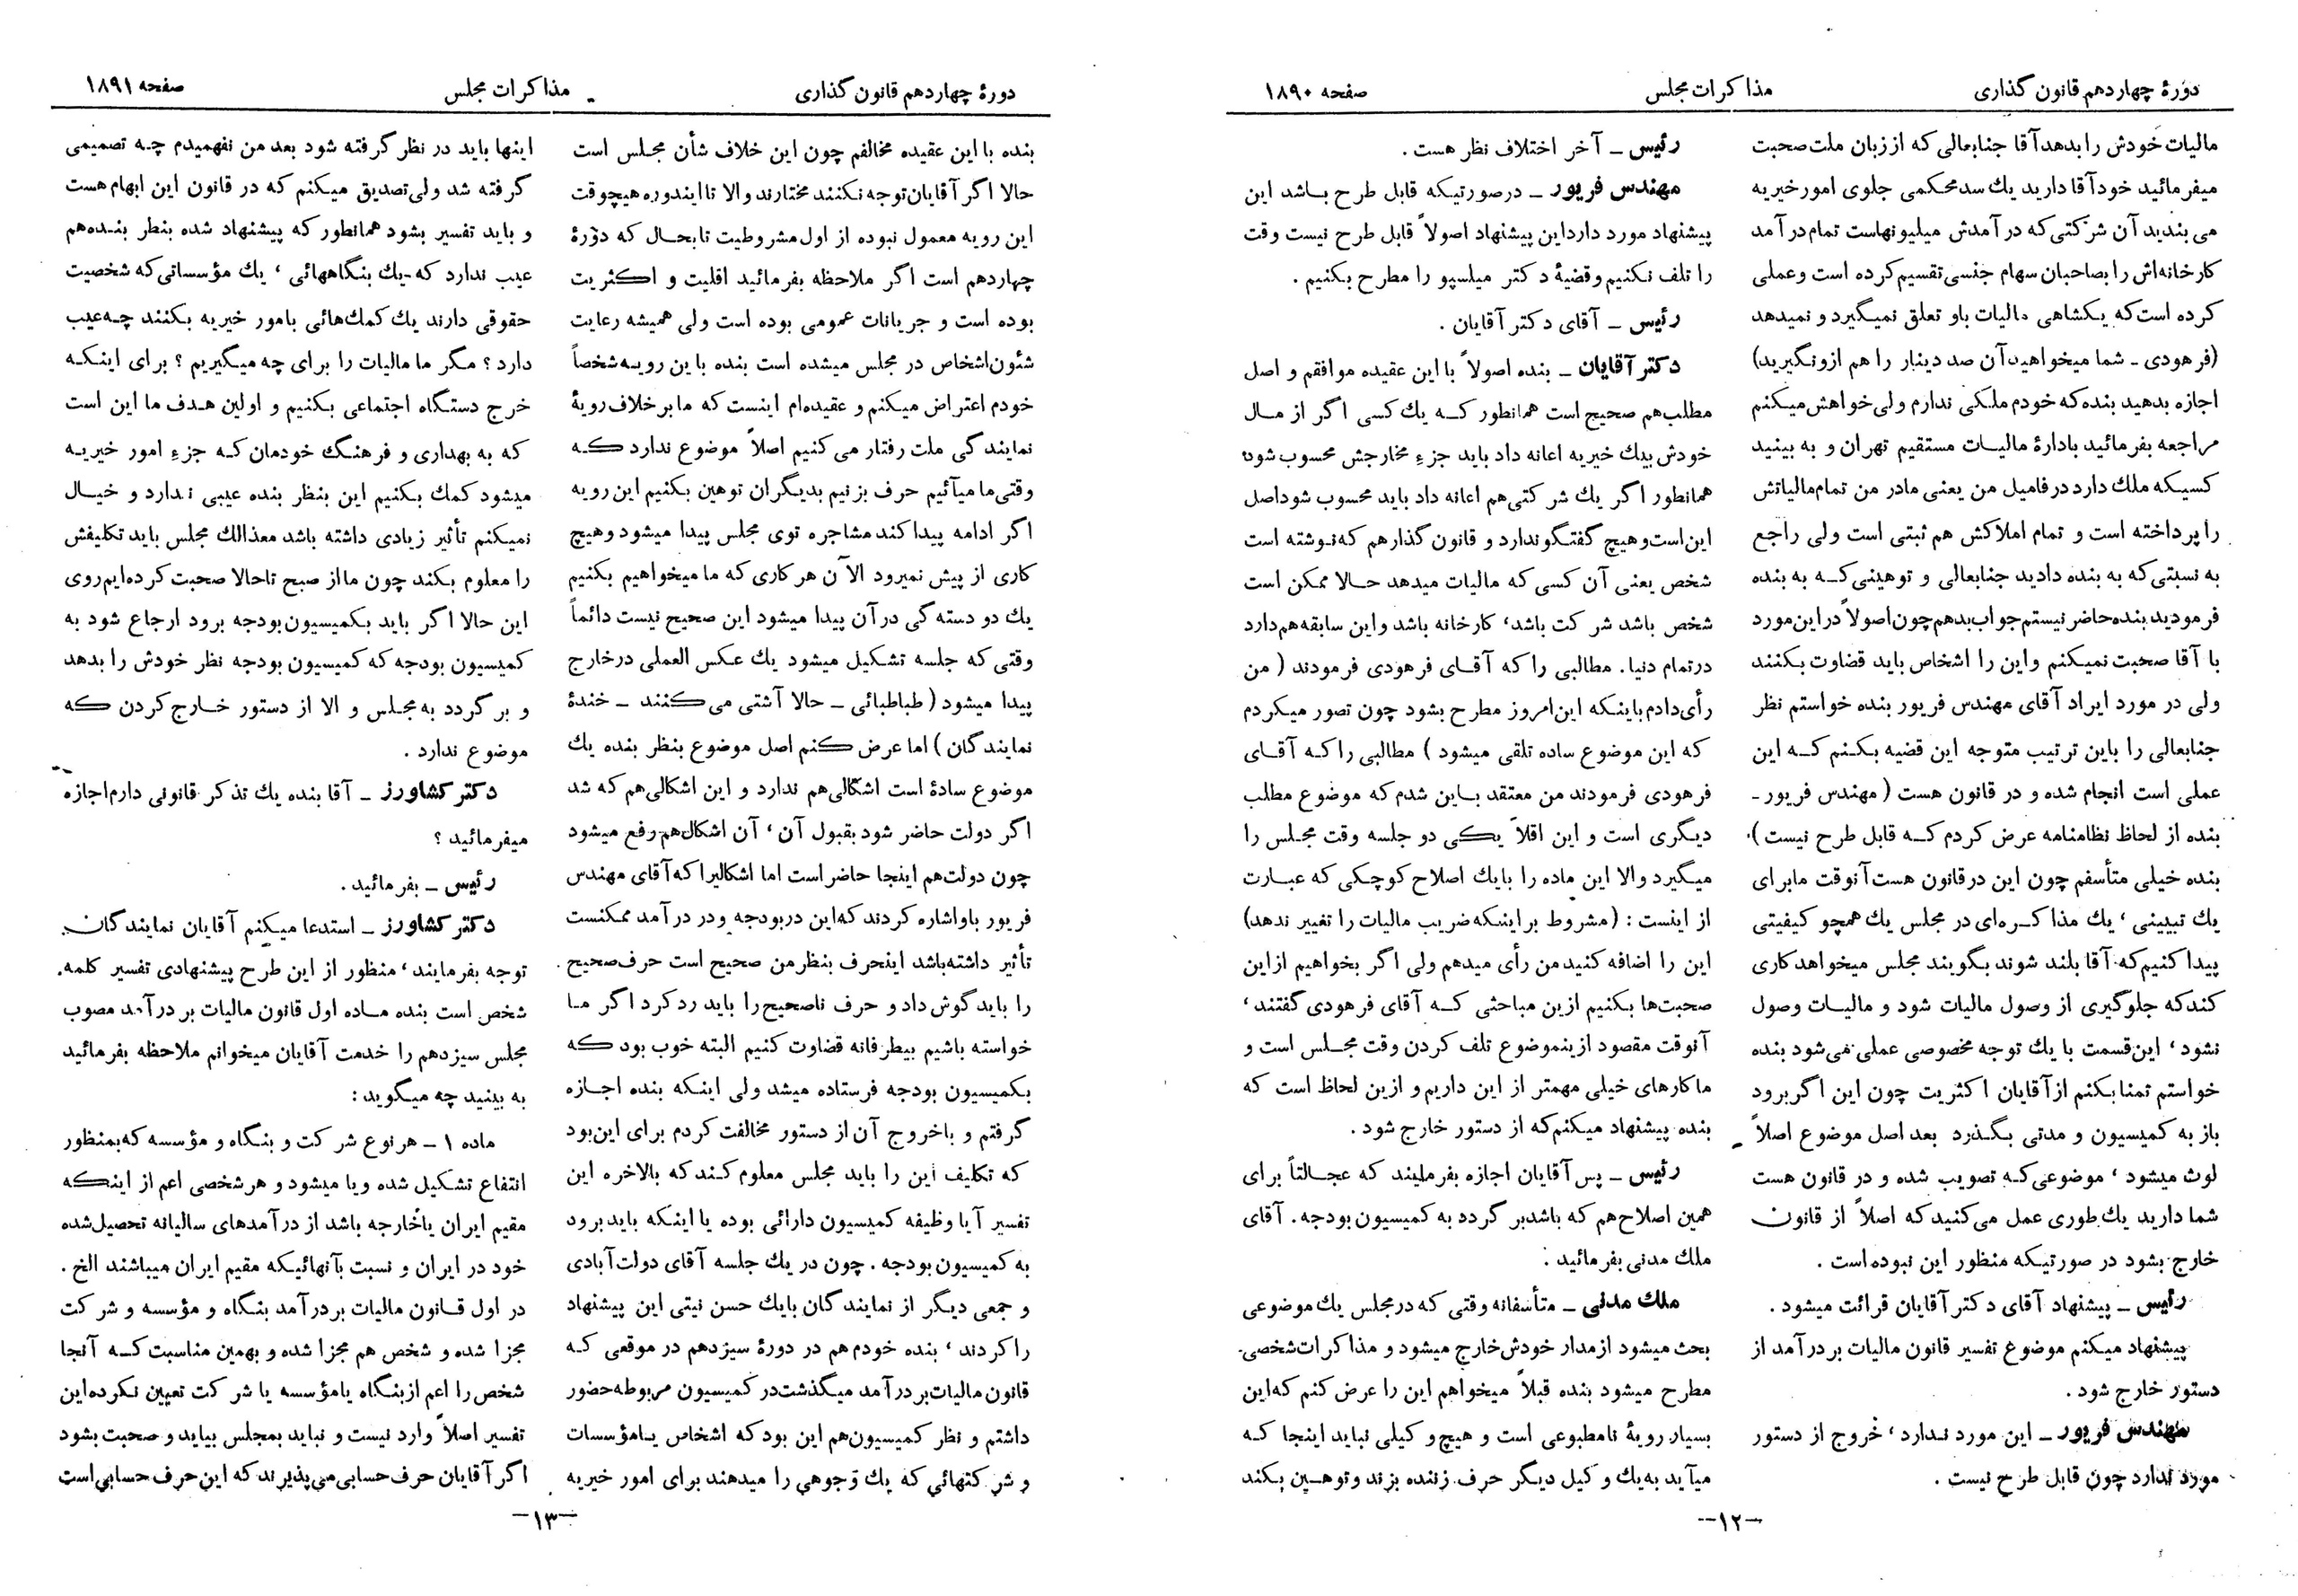 دورهٔ چهاردهم قانون گذاری
مذاکرات مجلس
صفحه ۱۸۹۰
مالیات خودش را بدهد آقا جنابعالی که از زبان ملت صحبت
میفرمائید خود آقا دارید یك سد محکمی جلوی امور خیریه
می بندید آن شرکتی که درآمدش میلیونهاست تمام درآمد
کارخانه‌اش را بصاحبان سهام جنسی تقسیم کرده است و عملی
کرده است که یکشاهی مالیات باو تعلق نمیگیرد و نمیدهد
(فرهودی ـ شما میخواهید آن صد دینار را هم ازو نگیرید)
اجازه بدهید بنده که خودم ملکی ندارم ولی خواهش میکنم
مراجعه بفرمائید بادارهٔ مالیات مستقیم تهران و به بینید
کسیکه ملك دارد در فامیل من یعنی مادر من تمام مالیاتش
را پرداخته است و تمام املاکش هم ثبتی است ولی راجع
به نسبتی که به بنده دادید جنابعالی و توهینی که به بنده
فرمودید بنده حاضر نیستم جواب بدهم چون اصولاً در این مورد
با آقا صحبت نمیکنم و این را اشخاص باید قضاوت بکنند
ولی در مورد ایراد آقای مهندس فریور بنده خواستم نظر
جنابعالی را باین ترتیب متوجه این قضیه بکنم که این
عملی است انجام شده و در قانون هست (مهندس فریور ـ
بنده از لحاظ نظامنامه عرض کردم که قابل طرح نیست)
بنده خیلی متأسفم چون این در قانون هست آنوقت ما برای
یك تبیینی ، یك مذاکره‌ای در مجلس یك همچو کیفیتی
پیدا کنیم که آقا بلند شوند بگویند مجلس میخواهد کاری
کند که جلوگیری از وصول مالیات شود و مالیات وصول
نشود ، این قسمت با یك توجه مخصوصی عملی می‌شود بنده
خواستم تمنا بکنم از آقایان اکثریت چون این اگر برود
باز به کمیسیون و مدتی بگذرد بعد اصل موضوع اصلاً
لوث میشود ، موضوعی که تصویب شده و در قانون هست
شما دارید یك طوری عمل می‌کنید که اصلاً از قانون
خارج بشود در صورتیکه منظور این نبوده است .
رئیس ـ پیشنهاد آقای دکتر آقایان قرائت میشود .
پیشنهاد میکنم موضوع تفسیر قانون مالیات بر درآمد از
دستور خارج شود .
مهندس فریور ـ این مورد ندارد ، خروج از دستور
مورد ندارد چون قابل طرح نیست .
رئیس ـ آخر اختلاف نظر هست .
مهندس فریور ـ درصورتیکه قابل طرح باشد این
پیشنهاد مورد دارد این پیشنهاد اصولاً قابل طرح نیست وقت
را تلف نکنیم و قضیهٔ دکتر میلسپو را مطرح بکنیم .
رئیس ـ آقای دکتر آقایان .
دکتر آقایان ـ بنده اصولاً با این عقیده موافقم و اصل
مطلب هم صحیح است همانطور که یك کسی اگر از مال
خودش بیك خیریه اعانه داد باید جزء مخارجش محسوب شود
همانطور اگر یك شرکتی هم اعانه داد باید محسوب شود اصل
این است و هیچ گفتگو ندارد و قانون گذار هم که نوشته است
شخص یعنی آن کسی که مالیات میدهد حالا ممکن است
شخص باشد شرکت باشد، کارخانه باشد و این سابقه هم دارد
در تمام دنیا. مطالبی را که آقای فرهودی فرمودند ( من
رأی دادم باینکه این امروز مطرح بشود چون تصور میکردم
که این موضوع ساده تلقی میشود ) مطالبی را که آقای
فرهودی فرمودند من معتقد باین شدم که موضوع مطلب
دیگری است و این اقلاً یکی دو جلسه وقت مجلس را
میگیرد والا این ماده را بایك اصلاح کوچکی که عبارت
از اینست : (مشروط بر اینکه ضریب مالیات را تغییر ندهد)
این را اضافه کنید من رأی میدهم ولی اگر بخواهیم از این
صحبت‌ها بکنیم ازین مباحثی که آقای فرهودی گفتند ،
آنوقت مقصود ازینموضوع تلف کردن وقت مجلس است و
ما کارهای خیلی مهمتر از این داریم و ازین لحاظ است که
بنده پیشنهاد میکنم که از دستور خارج شود .
رئیس ـ پس آقایان اجازه بفرمایند که عجالتاً برای
همین اصلاح هم که باشد برگردد به کمیسیون بودجه . آقای
ملك مدنی بفرمائید .
ملك مدنی ـ متأسفانه وقتی که در مجلس یك موضوعی
بحث میشود از مدار خودش خارج میشود و مذاکرات شخصی
مطرح میشود بنده قبلاً میخواهم این را عرض کنم که این
بسیار رویهٔ نامطبوعی است و هیچ وکیلی نباید اینجا که
میآید به یك وکیل دیگر حرف زننده بزند و توهین بکند
ـ۱۲ـ
دورهٔ چهاردهم قانون گذاری
مذاکرات مجلس
صفحه ۱۸۹۱
بنده با این عقیده مخالفم چون این خلاف شأن مجلس است
حالا اگر آقایان توجه نکنند مختارند والا تا ایندوره هیچوقت
این رویه معمول نبوده از اول مشروطیت تا بحال که دورهٔ
چهاردهم است اگر ملاحظه بفرمائید اقلیت و اکثریت
بوده است و جریانات عمومی بوده است ولی همیشه رعایت
شئون اشخاص در مجلس میشده است بنده باین رویه شخصاً
خودم اعتراض میکنم و عقیده‌ام اینست که ما برخلاف رویهٔ
نمایندگی ملت رفتار می کنیم اصلاً موضوع ندارد که
وقتی ما میآئیم حرف بزنیم بدیگران توهین بکنیم این رویه
اگر ادامه پیدا کند مشاجره توی مجلس پیدا میشود و هیچ
کاری از پیش نمیرود الآن هر کاری که ما میخواهیم بکنیم
یك دو دسته گی در آن پیدا میشود این صحیح نیست دائماً
وقتی که جلسه تشکیل میشود یك عکس العملی در خارج
پیدا میشود ( طباطبائی ـ حالا آشتی می کنند ـ خندهٔ
نمایندگان ) اما عرض کنم اصل موضوع بنظر بنده یك
موضوع سادهٔ است اشکالی هم ندارد و این اشکالی هم که شد
اگر دولت حاضر شود بقبول آن ، آن اشکال هم رفع میشود
چون دولت هم اینجا حاضر است اما اشکالیرا که آقای مهندس
فریور باو اشاره کردند که این در بودجه و در درآمد ممکنست
تأثیر داشته باشد اینحرف بنظر من صحیح است حرف صحیح
را باید گوش داد و حرف ناصحیح را باید رد کرد اگر ما
خواسته باشیم بیطرفانه قضاوت کنیم البته خوب بود که
بکمیسیون بودجه فرستاده میشد ولی اینکه بنده اجازه
گرفتم و باخروج آن از دستور مخالفت کردم برای این بود
که تکلیف این را باید مجلس معلوم کند که بالاخره این
تفسیر آیا وظیفه کمیسیون دارائی بوده یا اینکه باید برود
به کمیسیون بودجه . چون در یك جلسه آقای دولت آبادی
و جمعی دیگر از نمایندگان بایك حسن نیتی این پیشنهاد
را کردند ، بنده خودم هم در دورهٔ سیزدهم در موقعی که
قانون مالیات بر درآمد میگذشت در کمیسیون مربوطه حضور
داشتم و نظر کمیسیون هم این بود که اشخاص یا مؤسسات
و شرکتهائی که یك وجوهی را میدهند برای امور خیریه
اینها باید در نظر گرفته شود بعد من نفهمیدم چه تصمیمی
گرفته شد ولی تصدیق میکنم که در قانون این ابهام هست
و باید تفسیر بشود همانطور که پیشنهاد شده بنظر بنده هم
عیب ندارد که یك بنگاههائی ، یك مؤسساتی که شخصیت
حقوقی دارند یك کمك‌هائی بامور خیریه بکنند چه عیب
دارد ؟ مگر ما مالیات را برای چه میگیریم ؟ برای اینکه
خرج دستگاه اجتماعی بکنیم و اولین هدف ما این است
که به بهداری و فرهنگ خودمان که جزء امور خیریه
میشود کمك بکنیم این بنظر بنده عیبی ندارد و خیال
نمیکنم تأثیر زیادی داشته باشد معذالك مجلس باید تکلیفش
را معلوم بکند چون ما از صبح تا حالا صحبت کرده‌ایم روی
این حالا اگر باید بکمیسیون بودجه برود ارجاع شود به
کمیسیون بودجه که کمیسیون بودجه نظر خودش را بدهد
و برگردد به مجلس و الا از دستور خارج کردن که
موضوع ندارد .
دکتر کشاورز ـ آقا بنده یك تذکر قانونی دارم اجازه
میفرمائید ؟
رئیس ـ بفرمائید .
دکتر کشاورز ـ استدعا میکنم آقایان نمایندگان
توجه بفرمایند ، منظور از این طرح پیشنهادی تفسیر کلمه
شخص است بنده ماده اول قانون مالیات بر درآمد مصوب
مجلس سیزدهم را خدمت آقایان میخوانم ملاحظه بفرمائید
به بینید چه میگوید :
ماده ۱ ـ هر نوع شرکت و بنگاه و مؤسسه که بمنظور
انتفاع تشکیل شده و یا میشود و هر شخصی اعم از اینکه
مقیم ایران یا خارجه باشد از درآمدهای سالیانه تحصیل شده
خود در ایران و نسبت بآنهائیکه مقیم ایران میباشند الخ .
در اول قانون مالیات بر درآمد بنگاه و مؤسسه و شرکت
مجزا شده و شخص هم مجزا شده و بهمین مناسبت که آنجا
شخص را اعم از بنگاه یا مؤسسه یا شرکت تعیین نکرده این
تفسیر اصلاً وارد نیست و نباید بمجلس بیاید و صحبت بشود
اگر آقایان حرف حسابی می پذیرند که این حرف حسابی است
ـ۱۳ـ